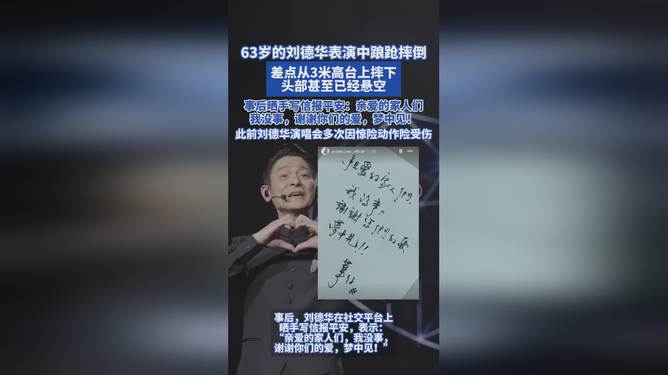 63岁的刘德华表演中踉跄摔倒
差点从3米高台上摔下
头部甚至已经悬空
事后晒手写信报平安：亲爱的家人们
我没事，谢谢你们的爱，梦中见！
此前刘德华演唱会多次因惊险动作险受伤
親愛的家人們，
我沒事。
謝謝你們的愛
夢中見!!
華仔
事后，刘德华在社交平台上
晒手写信报平安，表示：
“亲爱的家人们，我没事，
谢谢你们的爱，梦中见！”